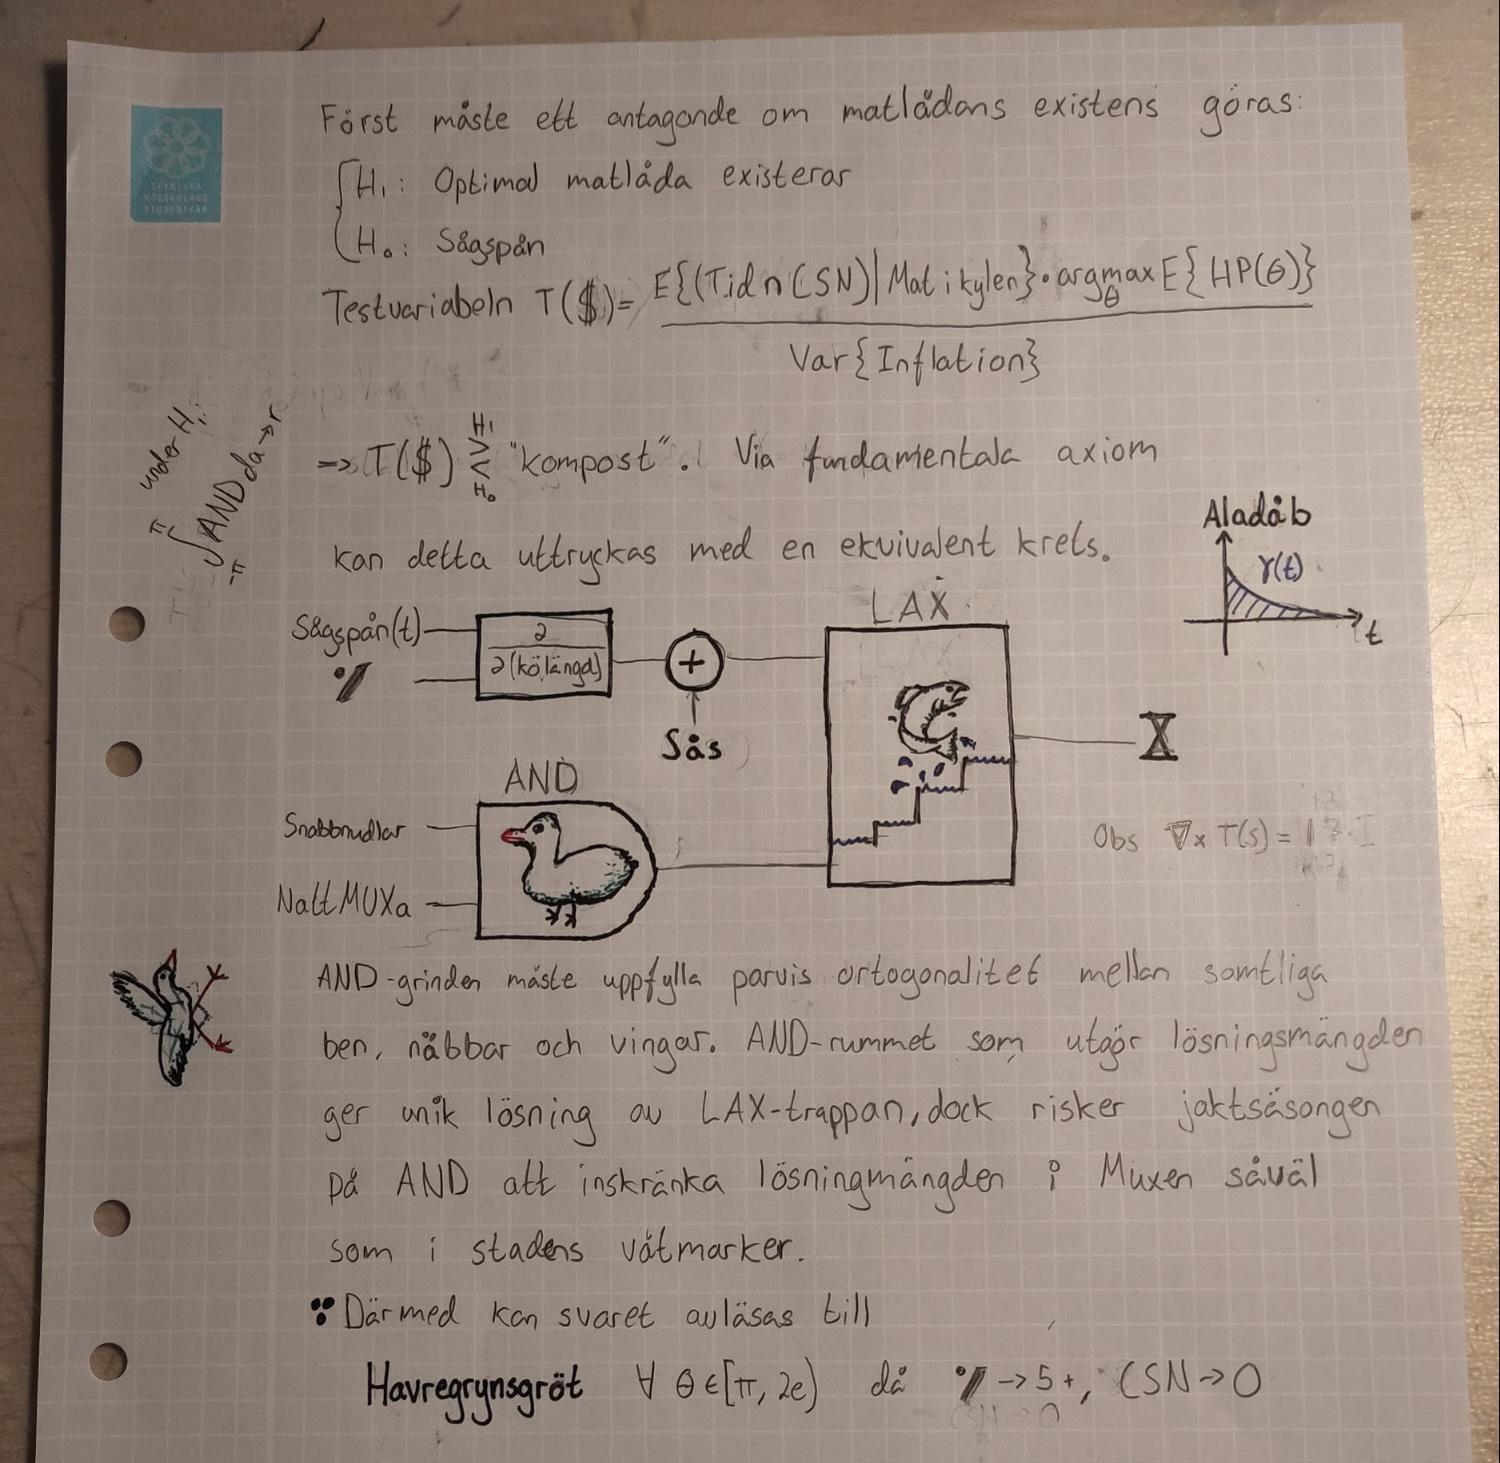 TEKNISKA
HÖGSKOLANS
STUDENTKÅR
Först måste ett antagande om matlådans existens göras:
H₁: Optimal matlåda existerar
H₀: Sågspån
Testvariabeln T($)= E{(Tid∩CSN)|Mat i kylen}·argmax E{HP(θ)}
θ
Var{Inflation}
under H₁:
π
∫AND da→r
-π
H₁
=> T($) ≷ "kompost". Via fundamentala axiom
H₀
kan detta uttryckas med en ekvivalent krets.
Aladåb
γ(t)
t
LAX
Sågspån(t)
∂
∂(kölängd)
+
Sås
X
AND
Snabbnudlar
NattMUXa
Obs ∇× T(s) =
AND-grinden måste uppfylla parvis ortogonalitet mellan samtliga
ben, näbbar och vingar. AND-rummet som utgör lösningsmängden
ger unik lösning av LAX-trappan, dock risker jaktsäsongen
på AND att inskränka lösningmängden i Muxen såväl
som i stadens våtmarker.
Därmed kan svaret avläsas till
Havregrynsgröt ∀ θ∈[π, 2e) då % → 5+, CSN→0